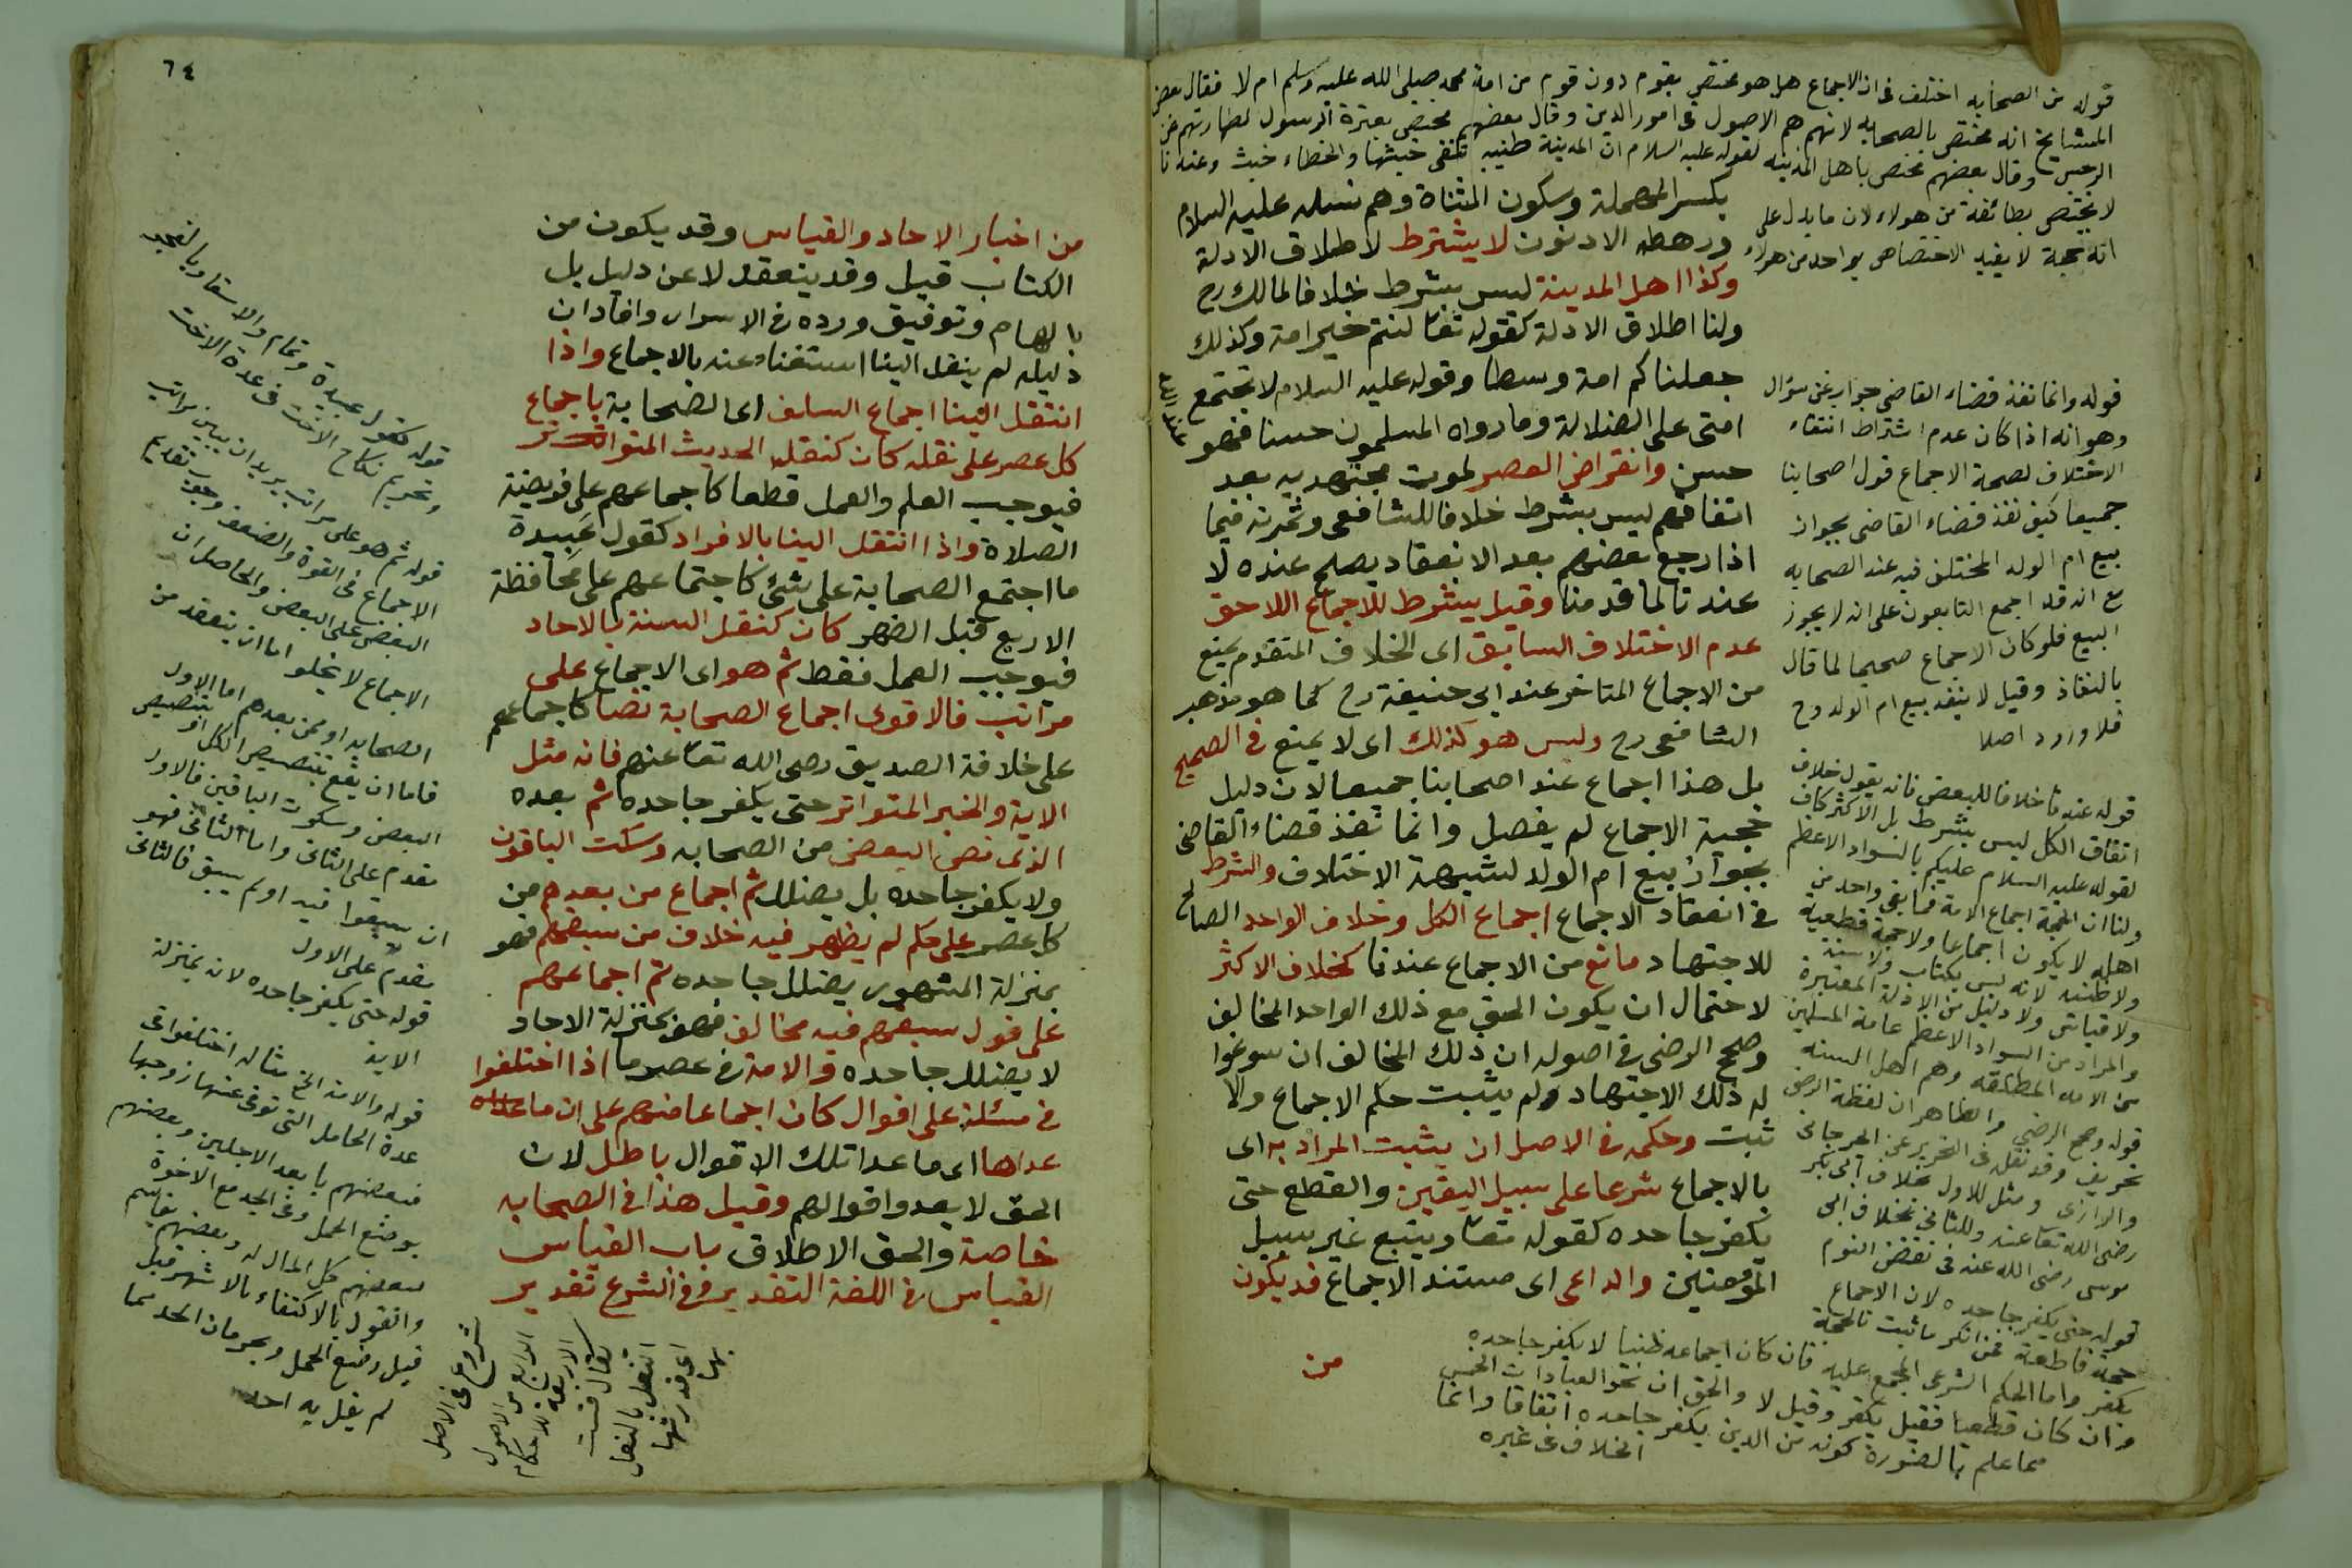 قوله من الصحابه اختلف فى ان الاجماع هل هو مختص بقوم دون قوم من امة محمد صلى الله عليه وسلم ام لا فقال بعض
المشايخ انه مختص بالصحابه لانهم هم الاصول فى امور الدين وقال بعضهم مختص بعترة الرسول لطهارتهم عن
الرجس وقال بعضهم مختص باهل المدينه لقوله عليه السلام ان المدينة طيبه تنفى خبثها والخطاء خبث وعندنا
لا يختص بطائفة من هولاء لان ما يدل على
انه حجة لا يفيد الاختصاص بواحد من هولاء
بكسر المهملة وسكون المثناة وهم نسله عليه السلام
ورهطه الادنون لا يشترط لاطلاق الادلة
وكذا اهل المدينة ليس بشرط خلافا لمالك رح
ولنا اطلاق الادلة كقوله تعا كنتم خير امة وكذلك
جعلناكم امة وسطا وقوله عليه السلام لا تجتمع
امتى على الضلالة وما رواه المسلمون حسنا فهو
عند الله
حسن وانقراض العصر لموت مجتهديه بعد
اتفاقهم ليس بشرط خلافا للشافعى وثمرته فيما
اذا رجع بعضهم بعد الانعقاد يصلح عنده لا
عندنا لما قدمنا وقيل يشترط للاجماع اللاحق
عدم الاختلاف السابق اى الخلاف المتقدم يمنع
من الاجماع المتاخر عند ابى حنيفة رح كما هو مذهب
الشافعى رح وليس هو كذلك اى لا يمنع فى الصحيح
بل هذا اجماع عند اصحابنا جميعا لان دليل
حجية الاجماع لم يفصل وانما نفذ قضاء القاضى
بجواز بيع ام الولد لشبهة الاختلاف والشرط
فى انعقاد الاجماع اجماع الكل وخلاف الواحد الصالح
للاجتهاد مانع من الاجماع عندنا كخلاف الاكثر
لاحتمال ان يكون الحق مع ذلك الواحد المخالف
وصحح الرضى فى اصوله ان ذلك المخالف ان سوغوا
له ذلك الاجتهاد ولم يثبت حكم الاجماع والا
ثبت وحكمه فى الاصل ان يثبت المراد به اى
بالاجماع شرعا على سبيل اليقين والقطع حتى
يكفر جاحده كقوله تعا ويتبع غير سبيل
المؤمنين والداعى اى مستند الاجماع قد يكون
من
قوله وانما نفذ قضاء القاضى جواب عن سؤال
وهو انه اذا كان عدم اشتراط انتفاء
الاختلاف لصحة الاجماع قول اصحابنا
جميعا كيف نفذ قضاء القاضى بجواز
بيع ام الولد المختلف فيه عند الصحابه
مع انه قد اجمع التابعون على انه لا يجوز
البيع فلو كان الاجماع صحيحا لما قال
بالنفاذ وقيل لا ينفذ بيع ام الولد وح
فلا ورود اصلا
قوله عندنا خلافا للبعض فانه يقول خلاف
اتفاق الكل ليس بشرط بل الاكثر كاف
لقوله عليه السلام عليكم بالسواد الاعظم
ولنا ان الحجة اجماع الامة فما بقى واحد من
اهله لا يكون اجماعا ولا حجة قطعية
ولا ظنية لانه ليس بكتاب ولا سنة
ولا قياس ولا دليل من الادلة المعتبرة
والمراد من السواد الاعظم عامة المسلمين
من الامة المطلقة وهم اهل السنه
قوله وصحح الرضى والظاهر ان لفظة الرضى
تحريف وقد نقله فى التحرير عن الجرجانى
والرازى ومثل للاول بخلاف ابى بكر
رضى الله تعا عنه وللثانى بخلاف ابى
موسى رضى الله عنه فى نقض النوم
قوله حتى يكفر جاحده لان الاجماع
حجة قاطعة فمن انكر ما ثبت بالحجة
يكفر واما الحكم الشرعى المجمع عليه فان كان اجماعه ظنيا لا يكفر جاحده
وان كان قطعيا فقيل يكفر وقيل لا والحق ان نحو العبادات الخمس
مما علم بالضرورة كونه من الدين يكفر جاحده اتفاقا وانما
الخلاف فى غيره
٦٤
من اخبار الاحاد والقياس وقد يكون من
الكتاب قيل وقد ينعقد لا عن دليل بل
بالهام وتوفيق ورده فى الاسرار وافاد ان
دليله لم ينقل الينا استغناء عنه بالاجماع واذا
انتقل الينا اجماع السلف اى الصحابة باجماع
كل عصر على نقله كان كنقل الحديث المتواتر
فيوجب العلم والعمل قطعا كاجماعهم على فرضية
الصلاة واذا انتقل الينا بالافراد كقول عبيدة
ما اجتمع الصحابة على شئ كاجتماعهم على محافظة
الاربع قبل الظهر كان كنقل السنة بالاحاد
فيوجب العمل فقط ثم هو اى الاجماع على
مراتب فالاقوى اجماع الصحابة نصا كاجماعهم
على خلافة الصديق رضى الله تعا عنهم فانه مثل
الاية والخبر المتواتر حتى يكفر جاحده ثم بعده
الذى نص البعض من الصحابه وسكت الباقون
ولا يكفر جاحده بل يضلل ثم اجماع من بعدهم من
كل عصر على حكم لم يظهر فيه خلاف من سبقهم فهو
بمنزلة المشهور يضلل جاحده ثم اجماعهم
على قول سبقهم فيه مخالف فهو بمنزلة الاحاد
لا يضلل جاحده والامة فى عصر ما اذا اختلفوا
فى مسئلة على اقوال كان اجماعا منهم على ان ما
عداها اى ما عدا تلك الاقوال باطل لان
الحق لا يعدو اقوالهم وقيل هذا فى الصحابه
خاصة والحق الاطلاق باب القياس
القياس فى اللغة التقدير وفى الشرع تقدير
قوله كقول عبيدة وتمام والاسفار بالصبح
وتحريم نكاح الاخت فى عدة الاخت
قوله ثم هو على مراتب يريد ان يبين مراتب
الاجماع فى القوة والضعف وجوب تقديم
البعض على البعض والحاصل ان
الاجماع لا يخلو اما ان ينعقد من
الصحابه او ممن بعدهم اما الاول
فاما ان يقع بتنصيص الكل او بتنصيص
البعض وسكوت الباقين فالاول
مقدم على الثانى واما الثانى فهو
ان سبقوا فيه او لم يسبق فالثانى
مقدم على الاول
قوله حتى يكفر جاحده لانه بمنزلة
الاية
قوله والامة الخ مثاله اختلفوا فى
عدة الحامل التى توفى عنها زوجها
فبعضهم بابعد الاجلين وبعضهم
بوضع الحمل وفى الجد مع الاخوة
فبعضهم كل المال له وبعضهم يقاسم
والقول بالاكتفاء بالاشهر قبل
قبل وضع الحمل وبحرمان الجد مما
لم يقل به احد
شروع فى الاصل
الرابع من الاصول
الاربعة للاحكام
يقال قست
النعل بالنعل
اى قدرتها
بها